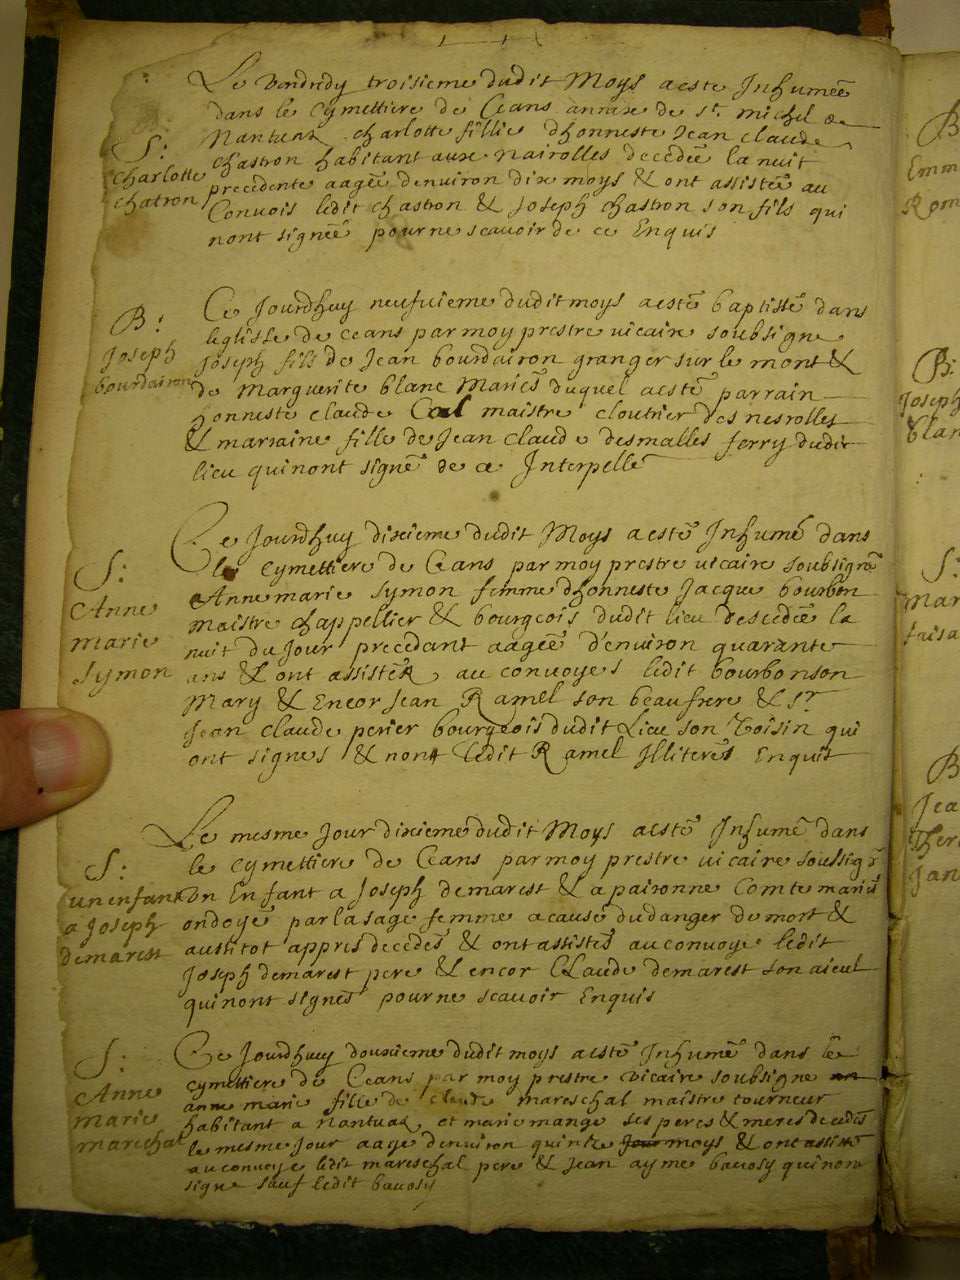 Le Vendredy troisieme dudit Moys a esté Inhumée
dans le cymettiere de Ceans annixe de st. michel de
Nantuax charlotte fillie dhonneste Jean claude
S:
Charlotte
chatron
chastron habitant aux nairolles decedée la nuit
precedente aagée denviron dix moys & ont assistés au
Convois ledit chastron & Joseph chastron son fils qui
nont signéé pour ne scavoir de ce Enquis
B:
Joseph
bourdairon
Ce Jourdhuy neufvieme dudit moys a esté baptissé dans
leglisse de ceans par moy prestre vicaire soubsigne
Joseph fils de Jean bourdairon granger sur le mont &
de Marguerite blanc Mariés duquel a esté parrain
honneste claude Cal maistre cloutrier des nesrolles
& marraine fille de Jean Claude desmalles ferry dudit
lieu qui nont signé de ce Interpellé
S:
Anne
marie
Symon
Ce Jourdhuy dixieme dudit Moys a esté Inhumé dans
le cymettiere de Ceans par moy prestre vicaire soubsigné
Anne marie symon femme dhonneste Jacque bourbon
maistre chappellier & bourgeois dudit lieu descedée la
nuit du Jour precedant aagéé d'environ quarante
ans & ont assistér au convoyes ledit bourbon son
Mary & Encor Jean Ramel son beaufrere & Sr
Jean claude perier bourgeois dudit Lieu son voisin qui
ont signes & nont ledit Ramel Illiterés Enquis
S:
un enfant
a Joseph
demarest
Le mesme Jour dixieme dudit Moys a esté Inhumé dans
le cymettiere de Ceans par moy prestre vicaire soussigé
un Enfant a Joseph demarest & a paironne Comte mariés
ondoyé par la sage femme a cause du danger de mort &
aussitot appres decedés & ont assistés au convoye ledit
Joseph demarest pere & encor CLaude demarest son aieul
qui nont signés pour ne scavoir Enquis
S:
Anne
marie
marechal
Ce Jourdhuy douxieme dudit moys a esté Inhumé dans le
cymettiere de Ceans par moy prestre vicaire soubsigne
anne marie fille de claude mareschal maistre tourneur
habitant a nantuax et marie mange ses peres & meres decedés
le mesme jour aage denviron quinze moys & ont assisté
au convoye ledit mareschal pere & Jean ayme bavosy qui non
signe sauf ledit bavosy
B
Emm
Rom
B:
Joseph
blan
S:
Mar
B
Jea
Ther
Jan